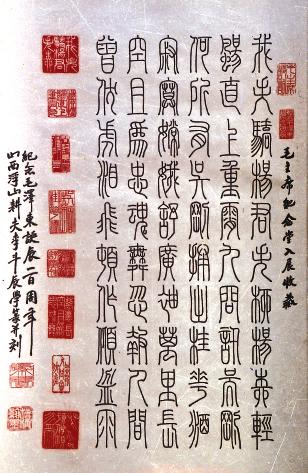 毛主席紀念堂入展收藏
我失驕楊君失柳楊柳輕
颺直上重霄九問訊吳剛
何所有吳剛捧出桂花酒
寂寞嫦娥舒廣袖萬里長
空且為忠魂舞忽報人間
曾伏虎淚飛頓作傾盆雨
紀念毛澤東誕辰一百周年
山西澤山耕夫李斗辰學篆并刻